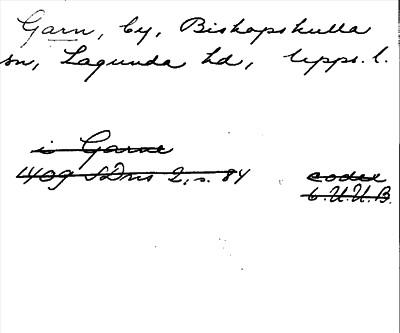 Garn, by, Bishopskulla
sn, Lagunda hd, Upps. l.
i Garne
1409 SDns 2, s. 84 codex
6. U.U.B.